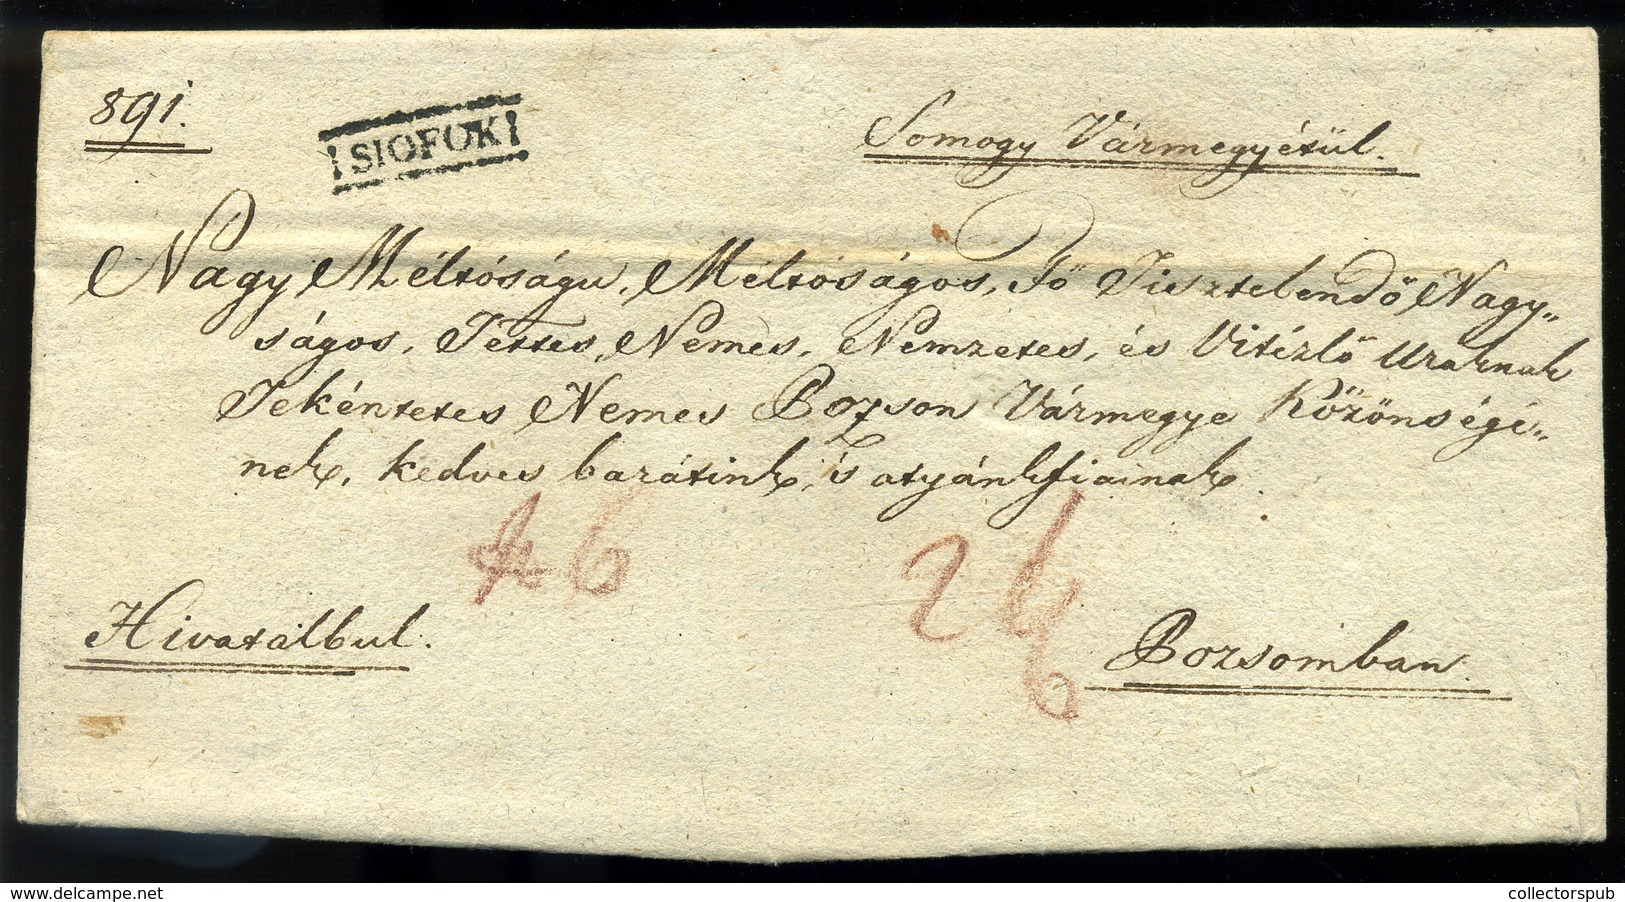 891.
SIOFOK
Somogy Vármegyétül.
Nagy Méltóságu, Méltóságos, Fő Tisztelendő, Nagy„
ságos, Tettes, Nemes, Nemzetes, és Vitézlő Uraknak
Tekéntetes Nemes Pozson Vármegye Közönségé„
nek, kedves barátink, és atyánkfiainak.
6 26
Hivatálbul.
6
Pozsomban.
delcampe.net
collectorspub